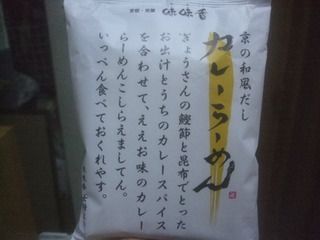 京都・祇園 味味香
京の和風だし
カレーらーめん
ぎょうさんの鰹節と昆布でとった
お出汁とうちのカレースパイス
を合わせて、ええお味のカレー
らーめんこしらえましてん。
いっぺん食べておくれやす。